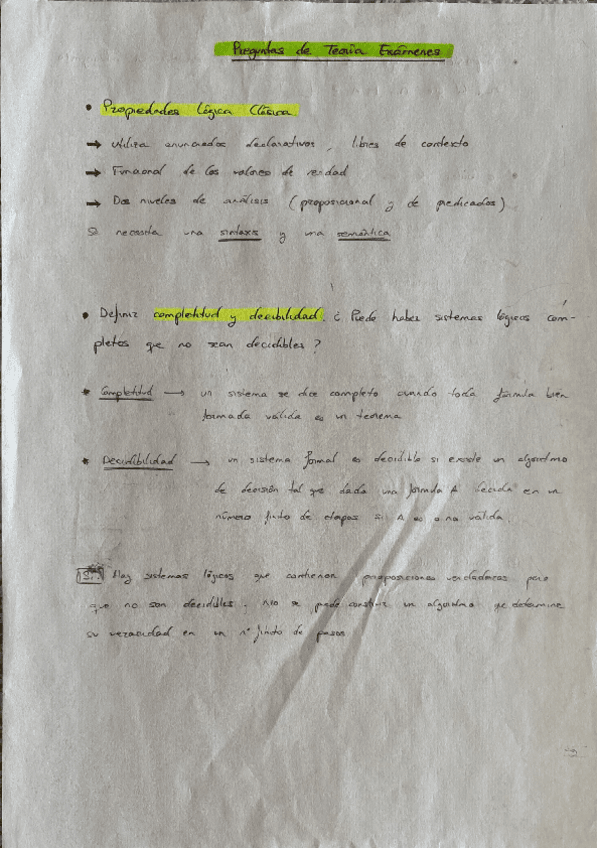 Preguntas de Teoría Exámenes
• Propiedades Lógica Clásica
→ Utiliza enunciados declarativos, libres de contexto
→ Funcional de los valores de verdad
→ Dos niveles de análisis (proposicional y de predicados)
Se necesita una sintaxis y una semántica
• Definir completitud y decibilidad. ¿Puede haber sistemas lógicos com-
pletos que no sean decidibles?
* Completitud → un sistema se dice completo cuando toda fórmula bien
formada válida es un teorema
* Decidibilidad → un sistema formal es decidible si existe un algoritmo
de decisión tal que dada una fórmula A decida en un
número finito de etapas si A es o no válida
Sí. Hay sistemas lógicos que contienen proposiciones verdaderas pero
que no son decidibles, no se puede construir un algoritmo que determine
su veracidad en un nº finito de pasos